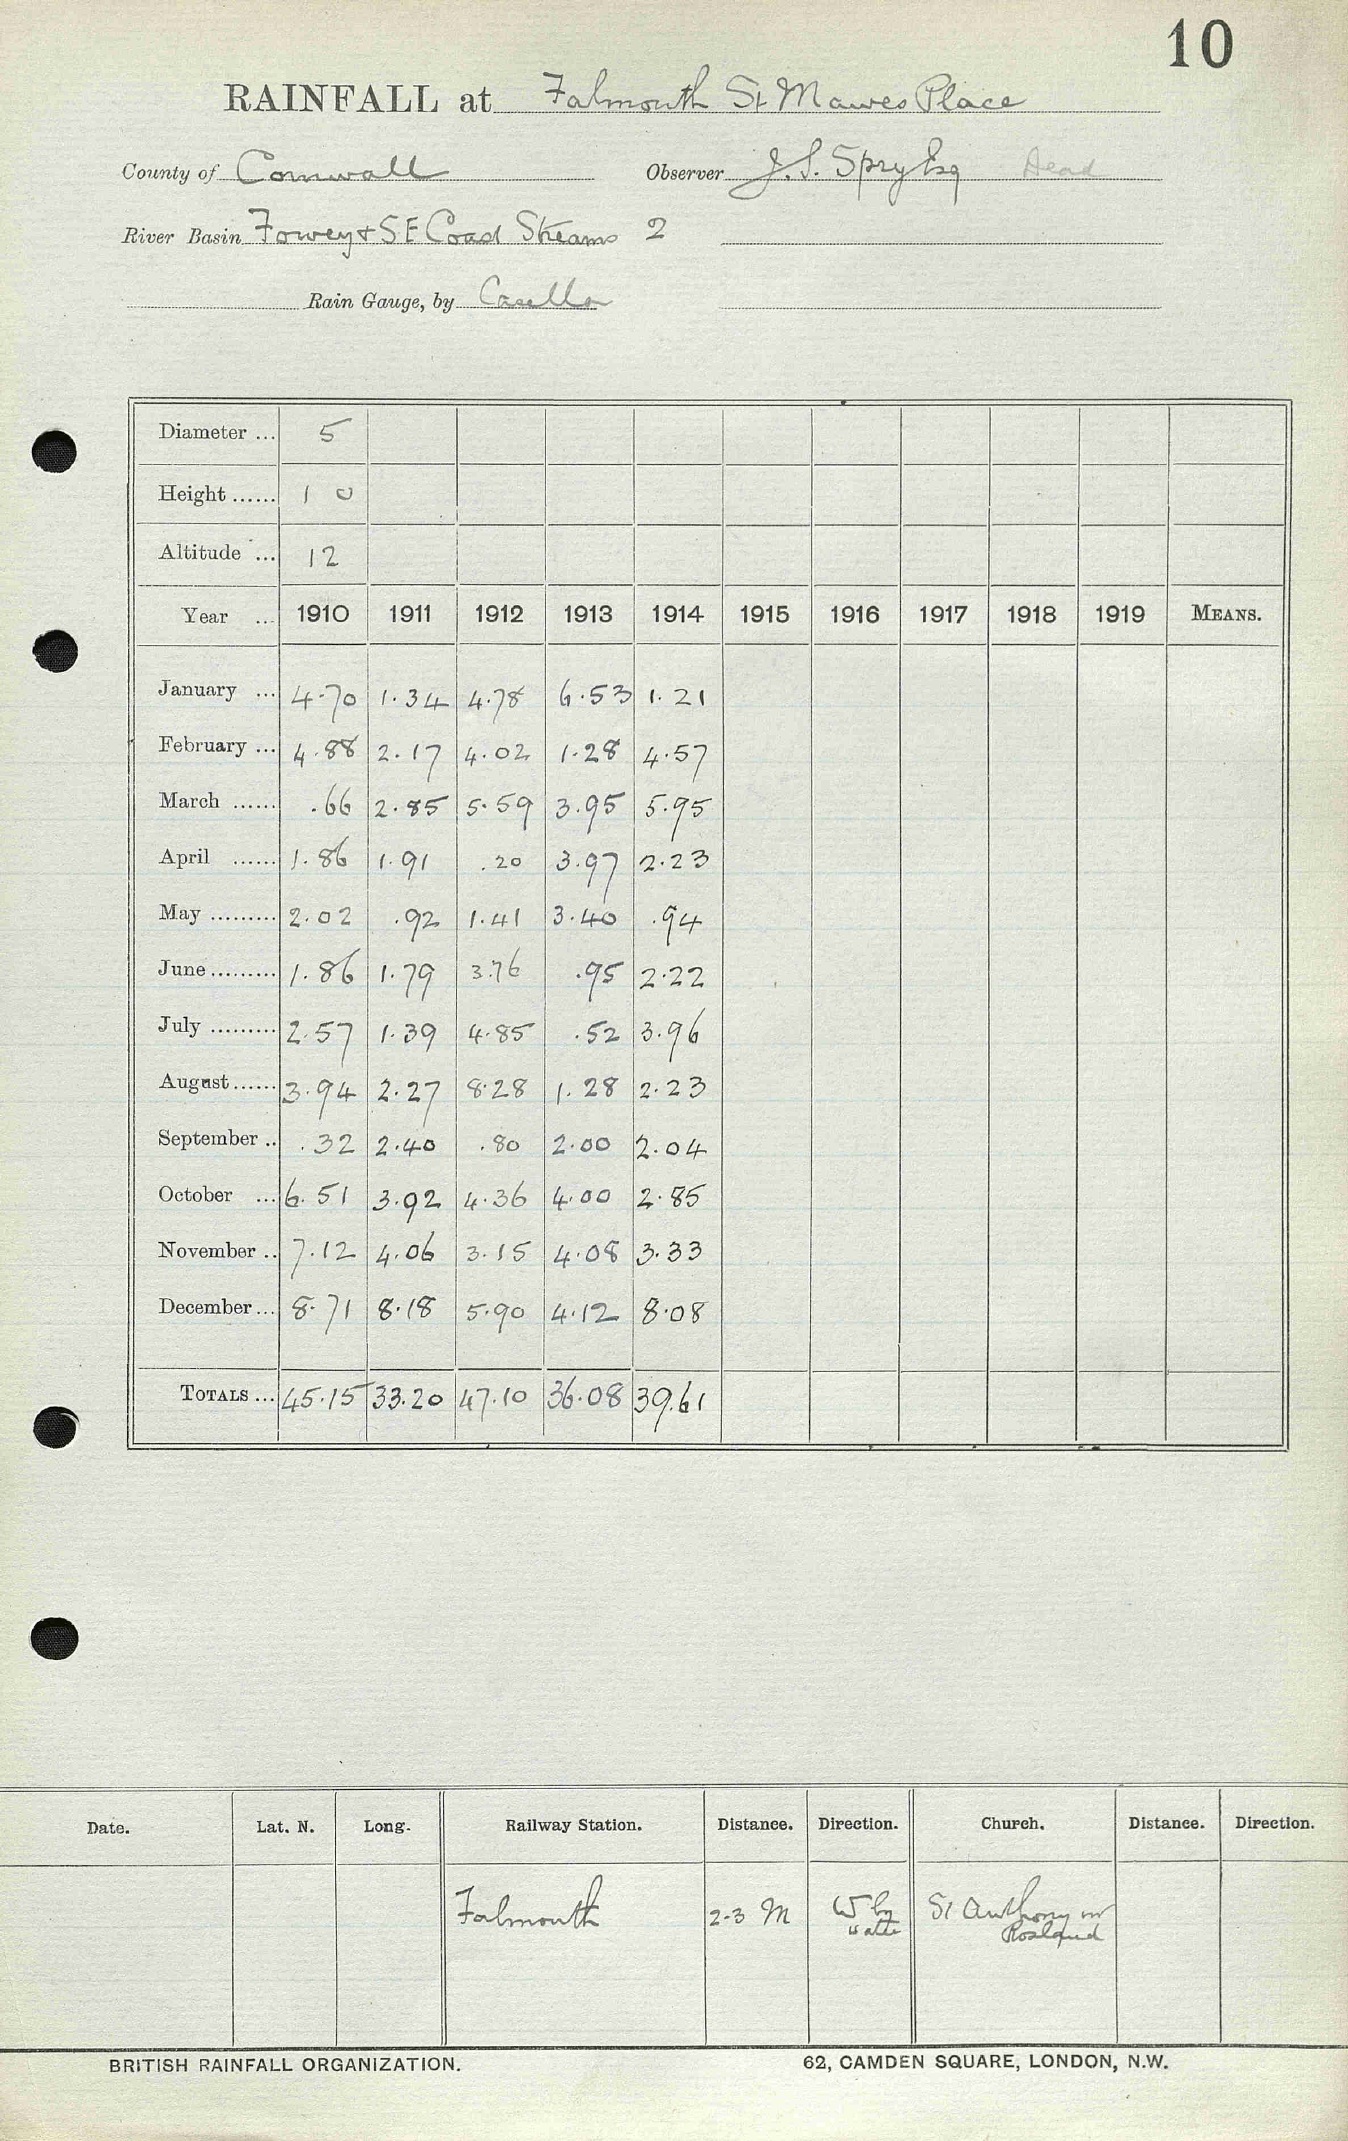 10
RAINFALL at Falmouth St Mawes Place
County of Cornwall Observer J. S. Spry Esq Dead
River Basin Fowey + SE Coast Streams 2
Rain Gauge, by Casella
Diameter ... 5
Height ...... 1 0
Altitude ... 12
Year ... 1910 1911 1912 1913 1914 1915 1916 1917 1918 1919 MEANS.
January ... 4.70 1.34 4.78 6.53 1.21
February ... 4.88 2.17 4.02 1.28 4.57
March ...... .66 2.85 5.59 3.95 5.95
April ...... 1.86 1.91 .20 3.97 2.23
May ......... 2.02 .92 1.41 3.40 .94
June ......... 1.86 1.79 3.76 .95 2.22
July ......... 2.57 1.39 4.85 .52 3.96
August ...... 3.94 2.27 8.28 1.28 2.23
September .. .32 2.40 .80 2.00 2.04
October ... 6.51 3.92 4.36 4.00 2.85
November .. 7.12 4.06 3.15 4.08 3.33
December ... 8.71 8.18 5.90 4.12 8.08
TOTALS ... 45.15 33.20 47.10 36.08 39.61
Date. Lat. N. Long. Railway Station. Distance. Direction. Church. Distance. Direction.
Falmouth 2-3 M W by St Anthony in
water Roseland
BRITISH RAINFALL ORGANIZATION. 62, CAMDEN SQUARE, LONDON, N.W.